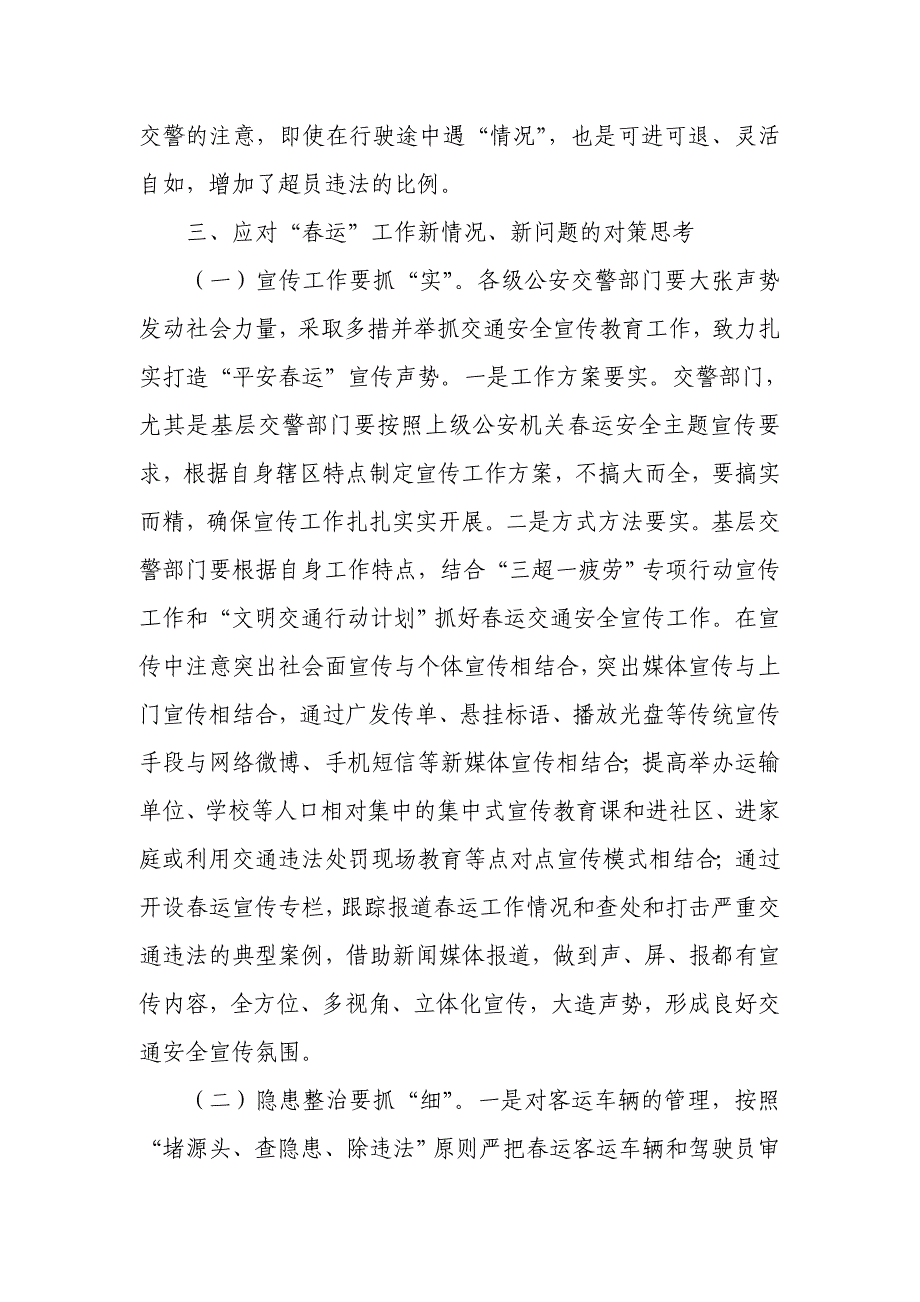 交警的注意，即使在行驶途中遇“情况”，也是可进可退、灵活
自如，增加了超员违法的比例。
三、应对“春运”工作新情况、新问题的对策思考
（一）宣传工作要抓“实”。各级公安交警部门要大张声势
发动社会力量，采取多措并举抓交通安全宣传教育工作，致力扎
实打造“平安春运”宣传声势。一是工作方案要实。交警部门，
尤其是基层交警部门要按照上级公安机关春运安全主题宣传要
求，根据自身辖区特点制定宣传工作方案，不搞大而全，要搞实
而精，确保宣传工作扎扎实实开展。二是方式方法要实。基层交
警部门要根据自身工作特点，结合“三超一疲劳”专项行动宣传
工作和“文明交通行动计划”抓好春运交通安全宣传工作。在宣
传中注意突出社会面宣传与个体宣传相结合，突出媒体宣传与上
门宣传相结合，通过广发传单、悬挂标语、播放光盘等传统宣传
手段与网络微博、手机短信等新媒体宣传相结合；提高举办运输
单位、学校等人口相对集中的集中式宣传教育课和进社区、进家
庭或利用交通违法处罚现场教育等点对点宣传模式相结合；通过
开设春运宣传专栏，跟踪报道春运工作情况和查处和打击严重交
通违法的典型案例，借助新闻媒体报道，做到声、屏、报都有宣
传内容，全方位、多视角、立体化宣传，大造声势，形成良好交
通安全宣传氛围。
（二）隐患整治要抓“细”。一是对客运车辆的管理，按照
“堵源头、查隐患、除违法”原则严把春运客运车辆和驾驶员审